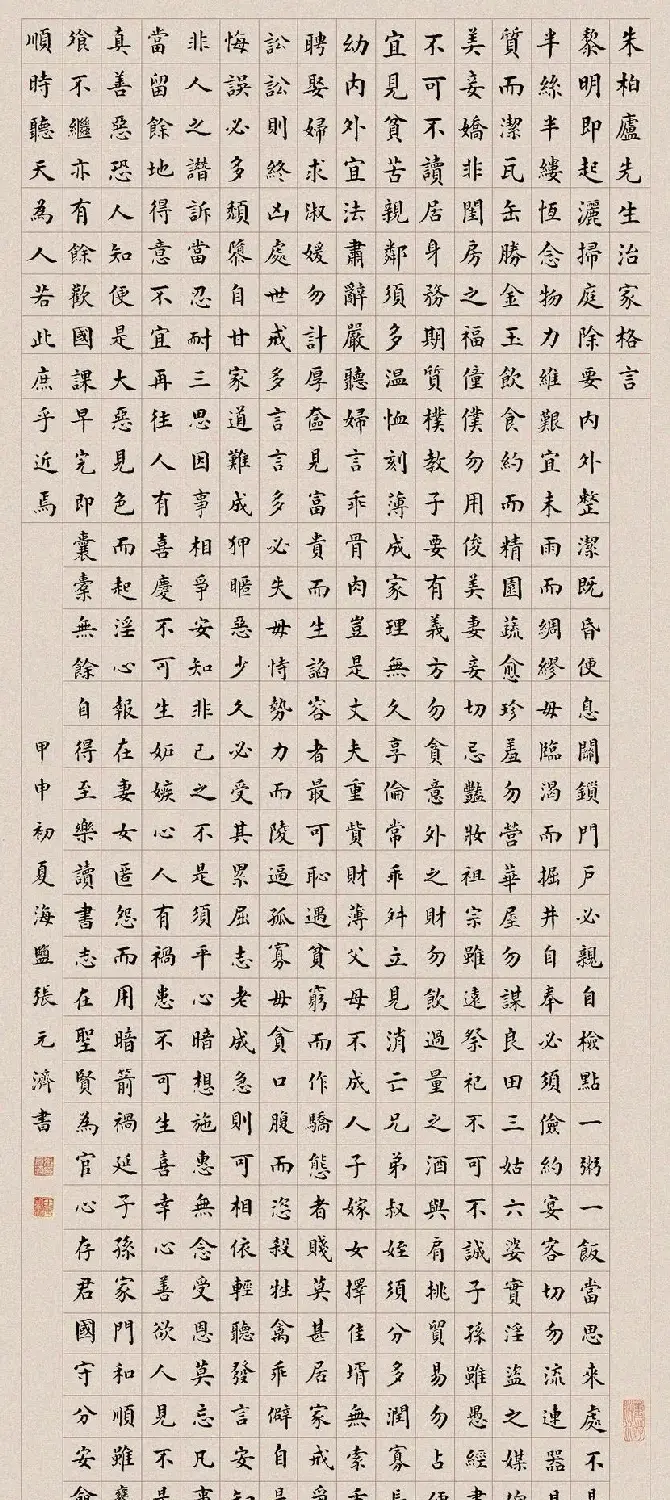 朱柏廬先生治家格言
黎明即起灑掃庭除要內外整潔既昏便息關鎖門戶必親自檢點一粥一飯當思來處不
半絲半縷恆念物力維艱宜未雨而綢繆毋臨渴而掘井自奉必須儉約宴客切勿流連器
質而潔瓦缶勝金玉飲食約而精園蔬愈珍羞勿營華屋勿謀良田三姑六婆實淫盜之媒
美妾嬌非閨房之福僮僕勿用俊美妻妾切忌豔妝祖宗雖遠祭祀不可不誠子孫雖愚經
不可不讀居身務期質樸教子要有義方勿貪意外之財勿飲過量之酒與肩挑貿易勿占
宜見貧苦親鄰須多温恤刻薄成家理無久享倫常乖舛立見消亡兄弟叔姪須分多潤寡
幼內外宜法肅辭嚴聽婦言乖骨肉豈是丈夫重貲財薄父母不成人子嫁女擇佳壻無索
聘娶婦求淑媛勿計厚奩見富貴而生諂容者最可恥遇貧窮而作驕態者賤莫甚居家戒
訟訟則終凶處世戒多言言多必失毋恃勢力而陵逼孤寡毋貪口腹而恣殺牲禽乖僻自
悔誤必多頹隳自甘家道難成狎暱惡少久必受其累屈志老成急則可相依輕聽發言安
非人之譖訴當忍耐三思因事相爭安知非己之不是須平心暗想施惠無念受恩莫忘凡
當留餘地得意不宜再往人有喜慶不可生妬嫉心人有禍患不可生喜幸心善欲人見不
真善惡恐人知便是大惡見色而起淫心報在妻女匿怨而用暗箭禍延子孫家門和順雖
飧不繼亦有餘歡國課早完即囊橐無餘自得至樂讀書志在聖賢為官心存君國守分安
順時聽天為人若此庶乎近焉
甲申初夏海鹽張元濟書